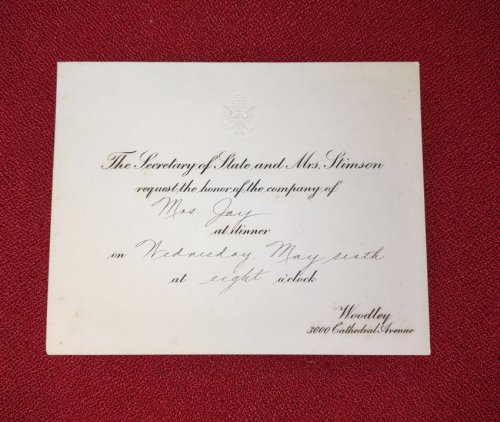 The Secretary of State and Mrs. Stimson
request the honor of the company of
Mrs. Jay
at dinner
on Wednesday May sixth
at eight o'clock
Woodley
3000 Cathedral Avenue